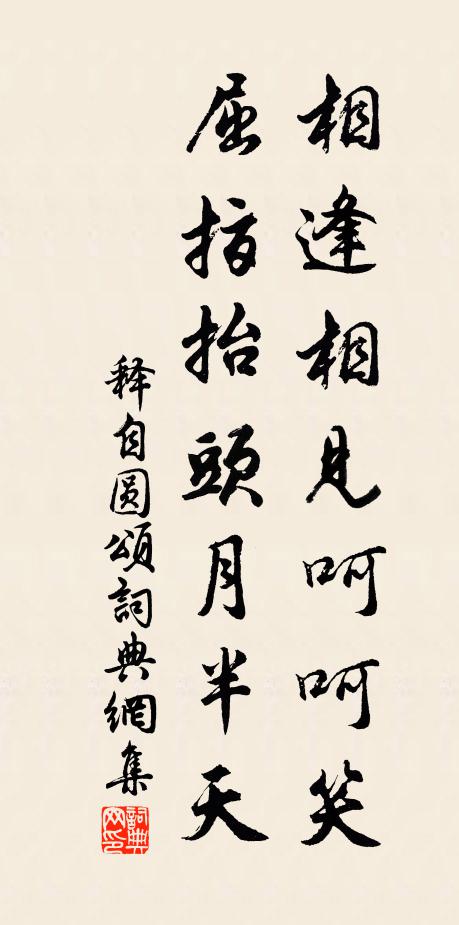 相逢相見呵呵笑
屈指抬頭月半天
释自圆頌詞典網集
詞典网印